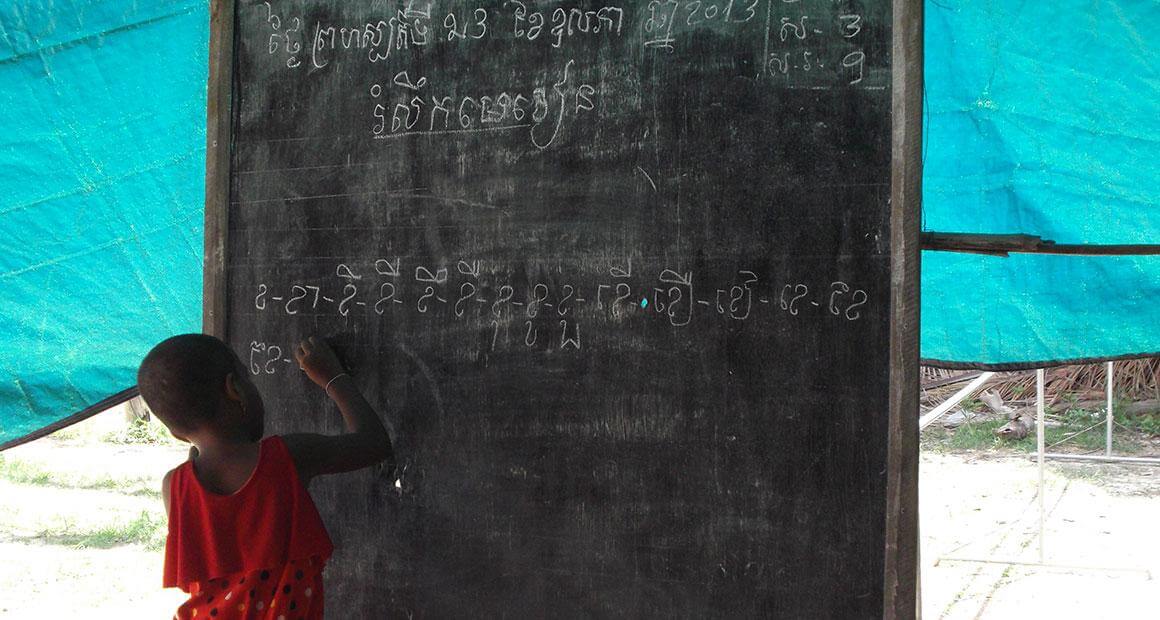 ថ្ងៃ ព្រហស្បតិ៍ទី ២៣ ខែ ឧសភា ឆ្នាំ 2013
ស - 3
ស.រ - 1
រំលឹកមេរៀន
ខ - ខា - ខិ - ខី - ខឹ - ខឺ - ខុ - ខូ - ខួ - ខើ - ខឿ - ខៀ - ខេ - ខែ
ខៃ -